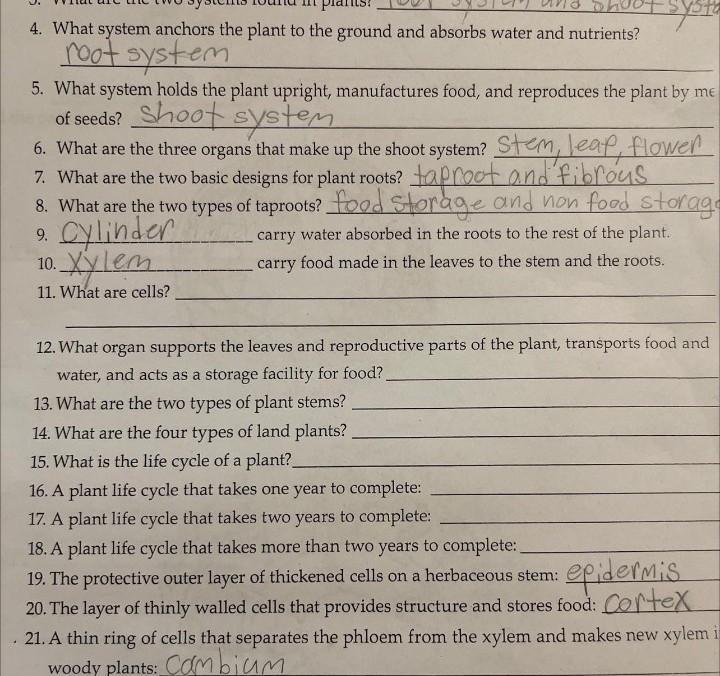 3. What are the two systems found in plants? root system and shoot syste
4. What system anchors the plant to the ground and absorbs water and nutrients?
root system
5. What system holds the plant upright, manufactures food, and reproduces the plant by me
of seeds? shoot system
6. What are the three organs that make up the shoot system? Stem, leaf, flower
7. What are the two basic designs for plant roots? taproot and fibrous
8. What are the two types of taproots? food storage and non food storage
9. Cylinder carry water absorbed in the roots to the rest of the plant.
10. Xylem carry food made in the leaves to the stem and the roots.
11. What are cells?
12. What organ supports the leaves and reproductive parts of the plant, transports food and
water, and acts as a storage facility for food?
13. What are the two types of plant stems?
14. What are the four types of land plants?
15. What is the life cycle of a plant?
16. A plant life cycle that takes one year to complete:
17. A plant life cycle that takes two years to complete:
18. A plant life cycle that takes more than two years to complete:
19. The protective outer layer of thickened cells on a herbaceous stem: epidermis
20. The layer of thinly walled cells that provides structure and stores food: Cortex
21. A thin ring of cells that separates the phloem from the xylem and makes new xylem i
woody plants: Cambium